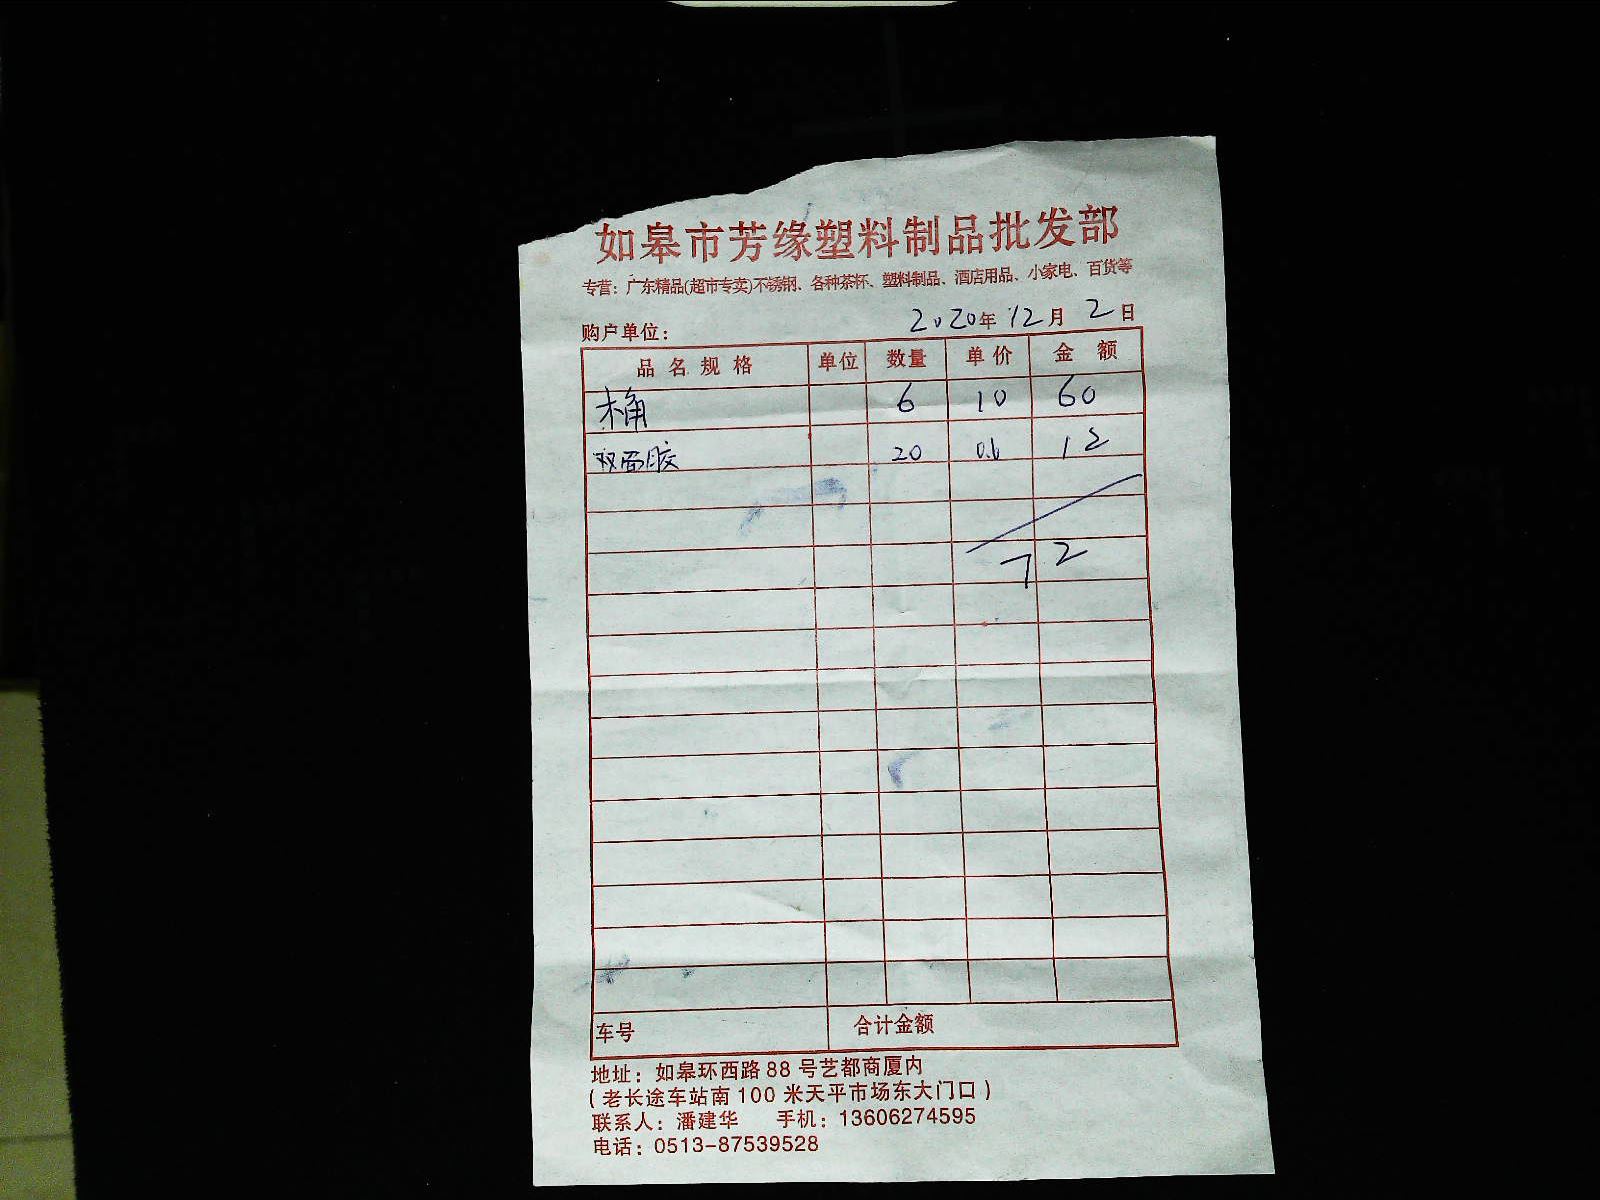 如皋市芳缘塑料制品批发部
专营：广东精品(超市专卖)不锈钢、各种茶杯、塑料制品、酒店用品、小家电、百货等
购户单位： 2020年12月2日
品名规格 单位 数量 单价 金额
桶 6 10 60
双面胶 20 0.6 12
72
车号 合计金额
地址：如皋环西路88号艺都商厦内
(老长途车站南100米天平市场东大门口)
联系人：潘建华 手机：13606274595
电话：0513-87539528